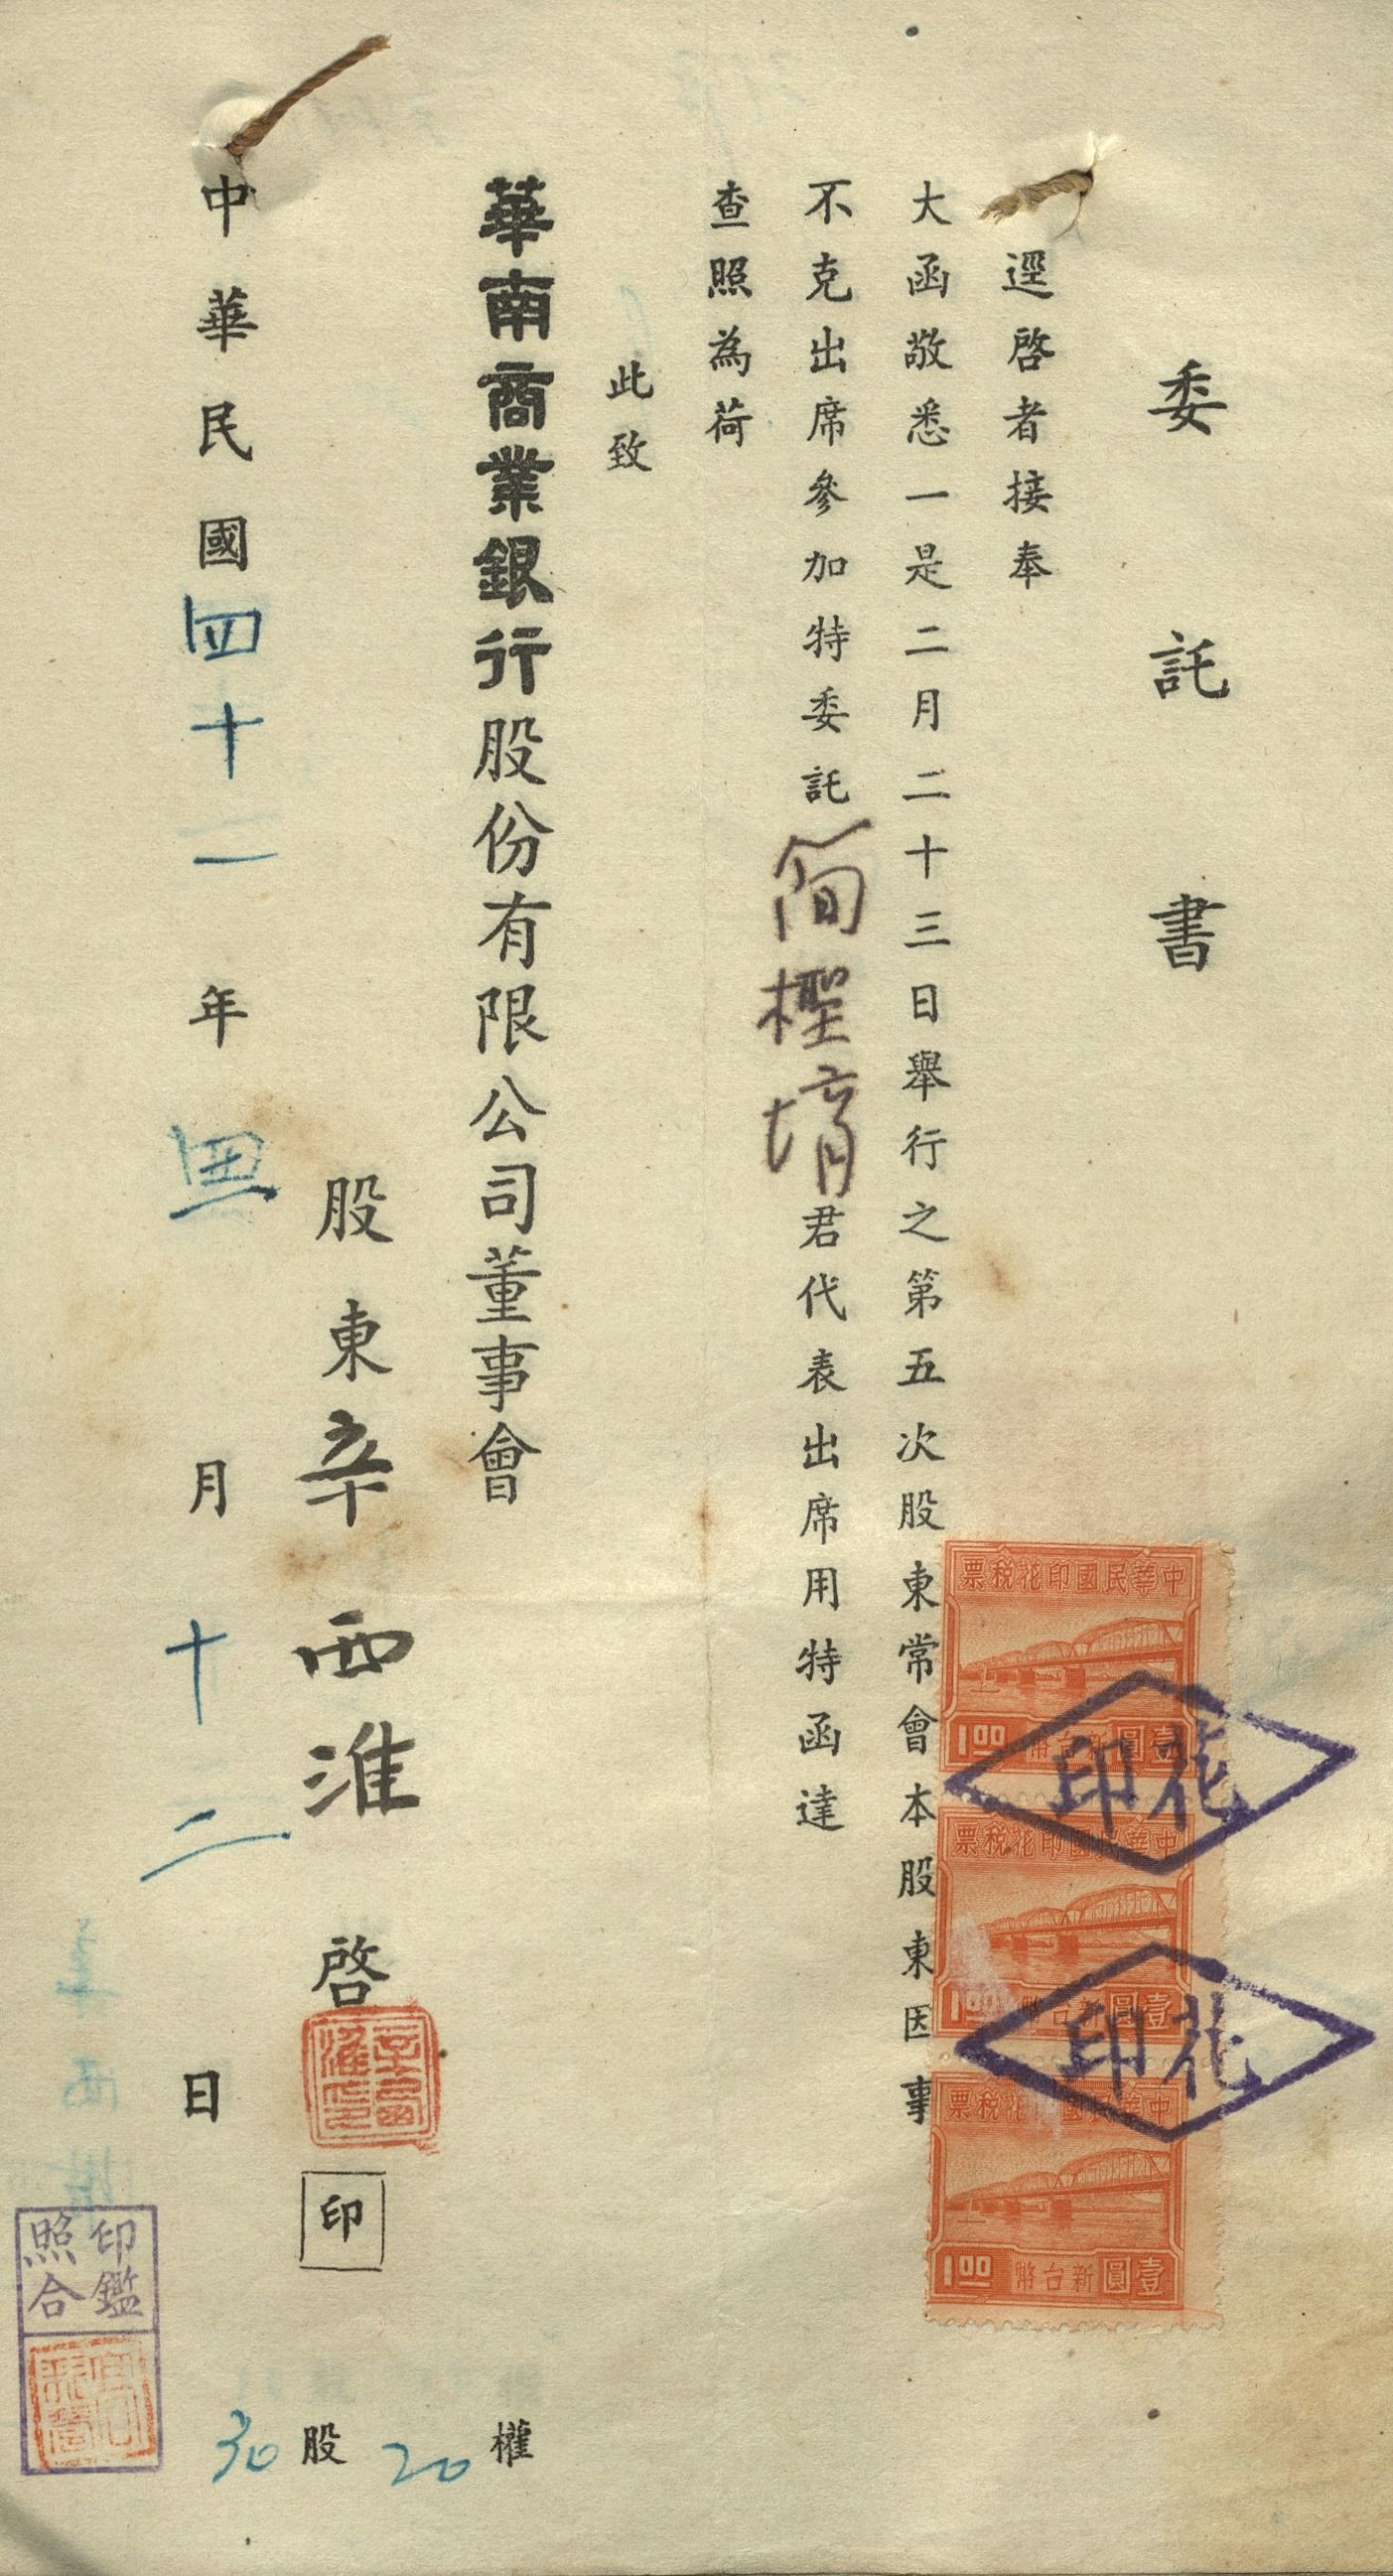 委託書
逕啓者接奉
大函敬悉一是二月二十三日舉行之第五次股東常會本股東因事
不克出席參加特委託簡檉堉君代表出席用特函達
查照為荷
此致
華南商業銀行股份有限公司董事會
股東辛西淮啓
印
中華民國四十一年 月十二日
30股 20權
中華民國印花稅票
壹圓 新台幣 1.00
中華民國印花稅票
壹圓 新台幣 1.00
中華民國印花稅票
壹圓 新台幣 1.00
花印
花印
印鑑
照合